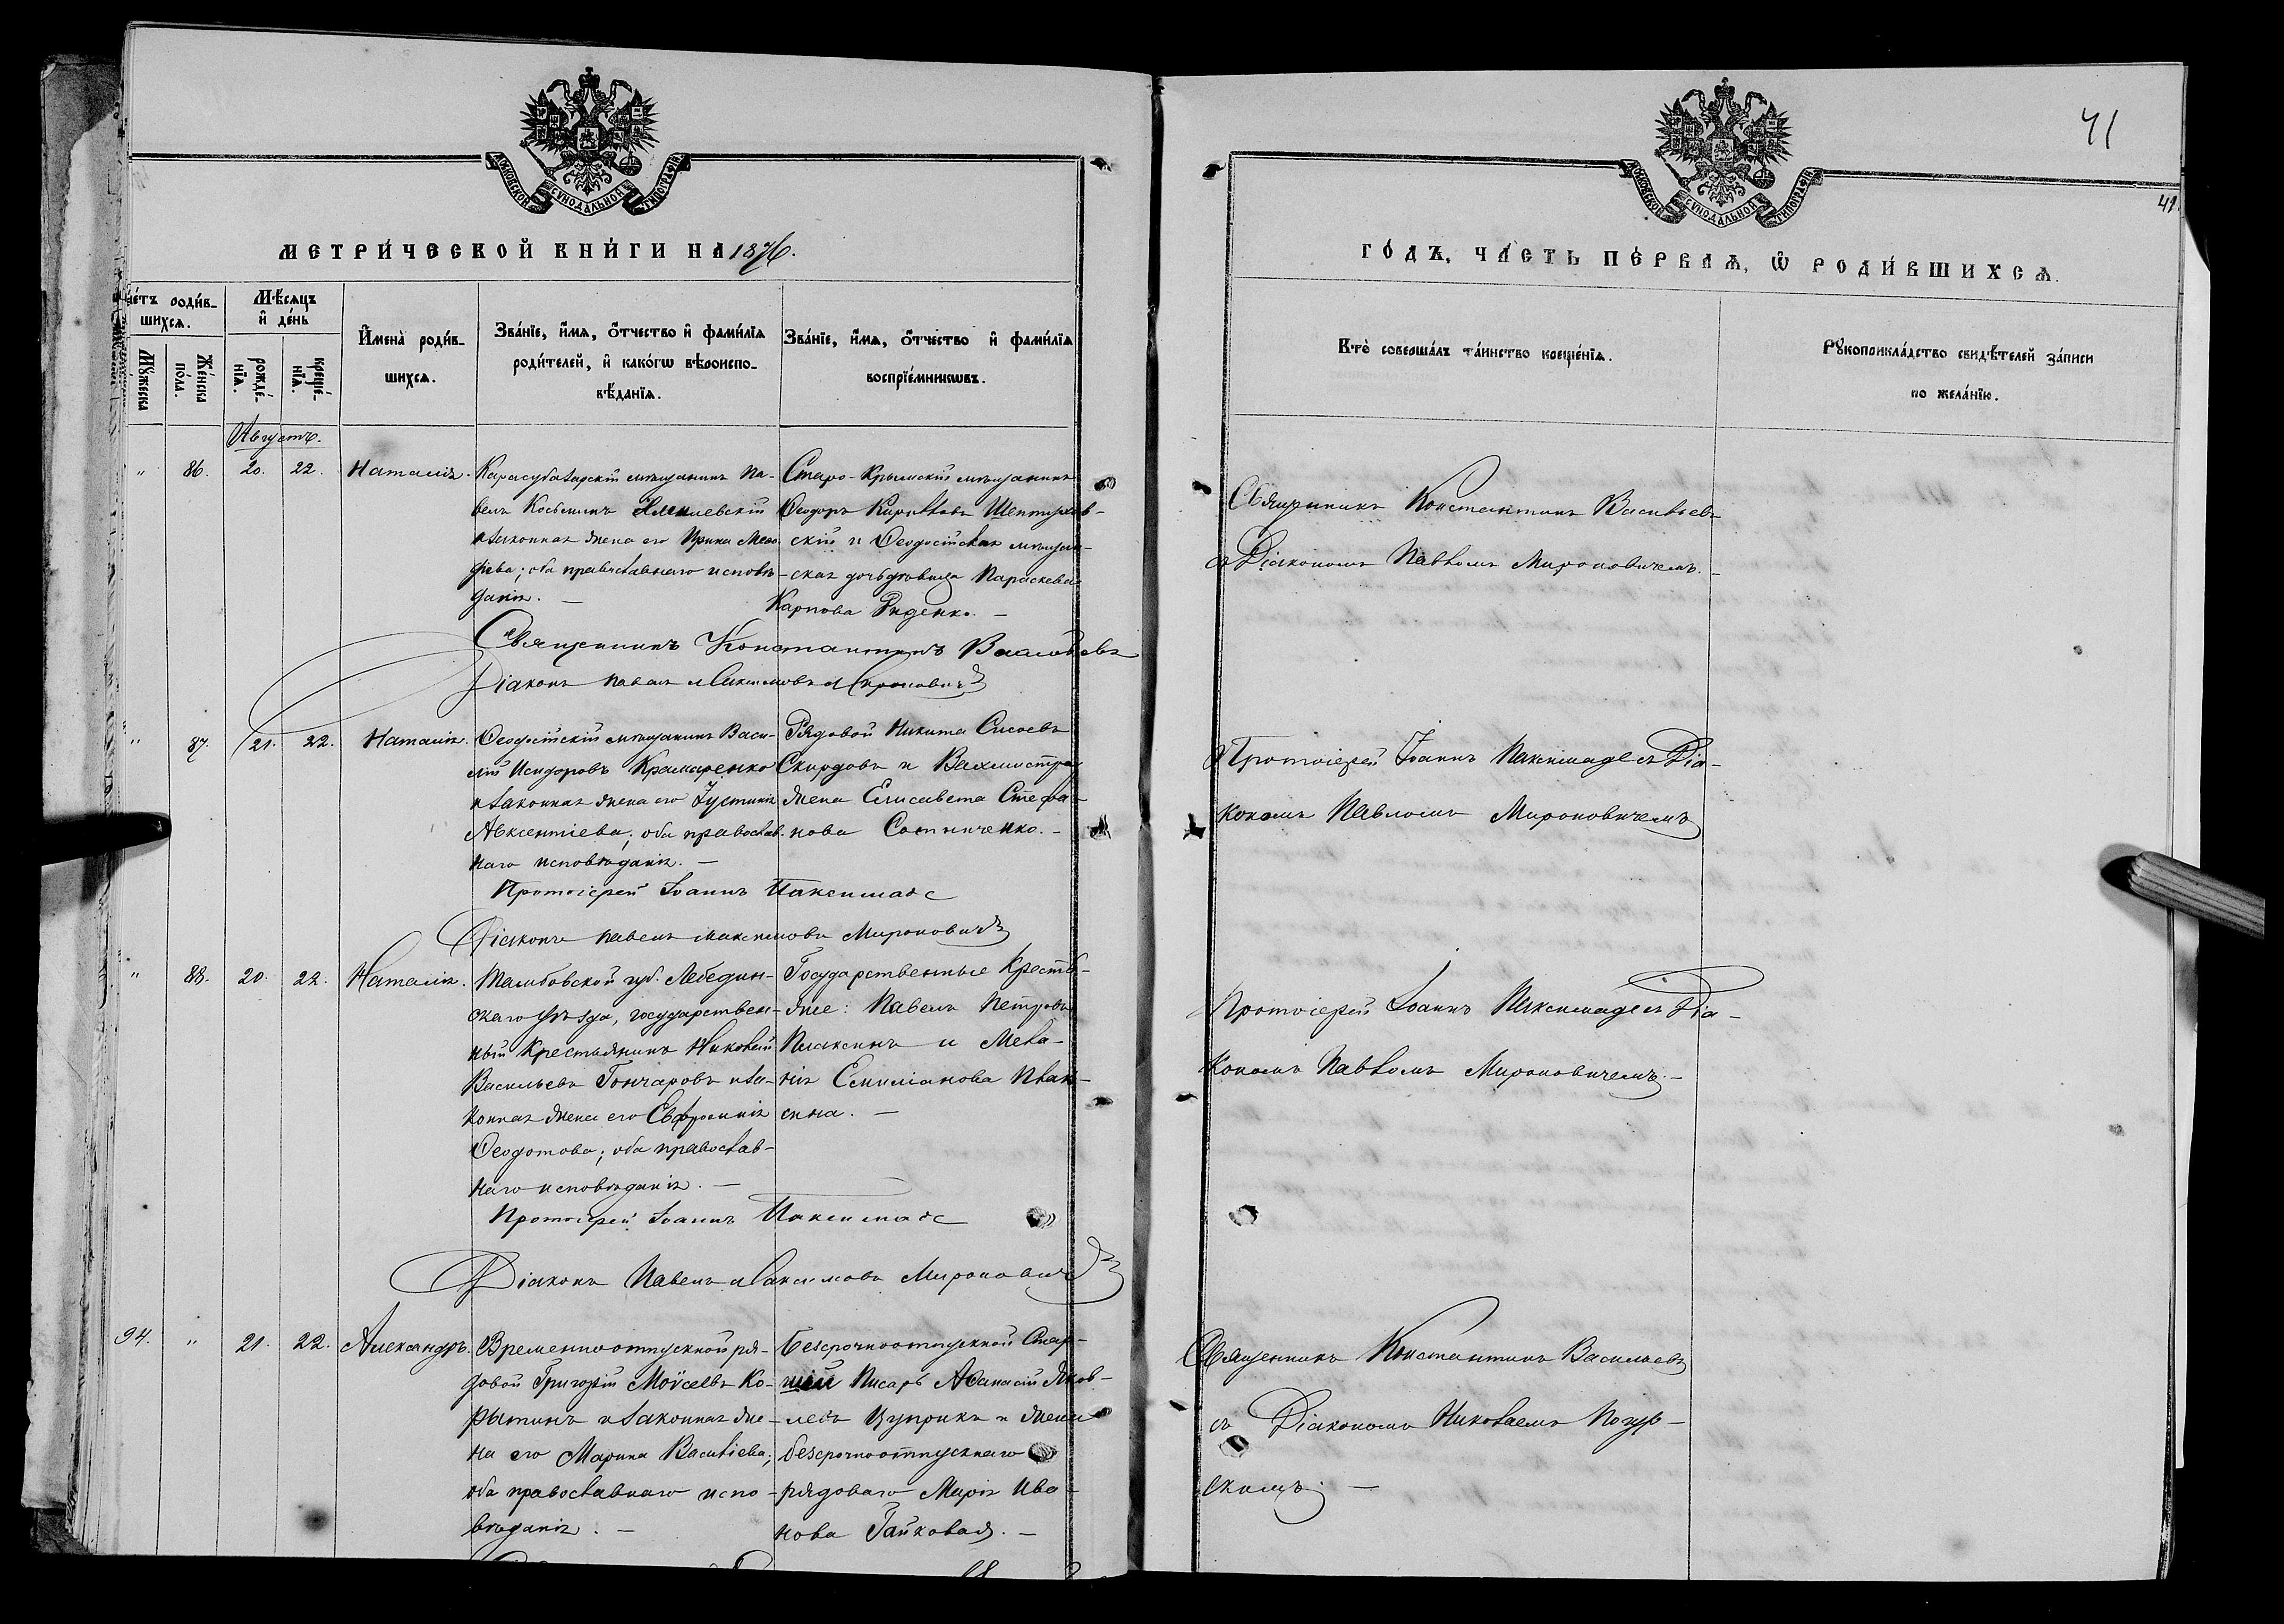 МОСКОВСКОЙ СѴНОДАЛЬНОЙ ТИПОГРАФІИ
МЕТРИ́ЧЕСКОЙ КНИ́ГИ НА 1876.
Сче́тъ роди́в-
шихся.
Мѣ́сяцъ
и҆ де́нь
И҆мена̀ роди́в-
шихся.
Зва́нїе, и҆́мя, о҆́тчество и҆ фами́лїя
роди́телей, и҆ како́гѡ вѣроиспо-
вѣ́данїя.
Зва́нїе, и҆́мя, о҆́тчество и҆ фами́лїя
воспрїе́мникѡвъ.
Мꙋ́жеска
Же́нска
по́ла.
рожде́-
нїя.
креще́-
нїя.
Августъ.
" 86. 20. 22. Наталія.
Карасубазарскій мѣщанинъ Па-
велъ Косьминъ
и законная жена его Ирина Меѳо-
діева; оба православнаго исповѣ-
данія. —
Старо-Крымскій мѣщанинъ
Ѳеодоръ Кирилловъ Шептухов-
скій и Ѳеодосійская мѣщан-
ская дочь дѣвица Параскева
Карпова Руденко. —
Священникъ Константинъ Васильевъ
Діаконъ Павелъ Максимовъ Мироновичъ
" 87. 21. 22. Наталія.
Ѳеодосійскій мѣщанинъ Васи-
лій Исидоровъ Крамаренко
и законная жена его Іустинія
Авксентіева; оба православ-
наго исповѣданія. —
Рядовой Никита Сисоевъ
Скирдовъ и Вахмистра
жена Елисавета Стефа-
нова Сотниченко. —
Протоіерей Іоаннъ Паксимаде
Діаконъ Павелъ Максимовъ Мироновичъ
" 88. 20. 22. Наталія.
губ. Лебедин-
скаго уѣзда, государствен-
ный крестьянинъ Николай
Васильевъ Гончаровъ и за-
конная жена его Евфросинія
Ѳеодотова; оба православ-
наго исповѣданія. —
Государственные Кресть-
яне: Павелъ Петровъ
Плаксинъ и Мела-
нія Емиліанова Плак-
сина. —
Протоіерей Іоаннъ Паксимаде
Діаконъ Павелъ Максимовъ Мироновичъ
94. " 21. 22. Александръ.
Временноотпускной ря-
довой Григорій Моѵсеевъ Ко-
рытинъ и законная же-
на его Марина Василіева;
оба православнаго испо-
вѣданія. —
Безсрочноотпускной Стар-
шій Писарь Аѳанасій Яков-
левъ Цуприкъ и жена
безсрочноотпускнаго
рядоваго Марія Ива-
нова Гайковая. —
41
41.
МОСКОВСКОЙ СѴНОДАЛЬНОЙ ТИПОГРАФІИ
ГО́ДЪ, ЧА́СТЬ ПЕ́РВАЯ, Ѡ҆ РОДИ́ВШИХСЯ.
Кто̀ соверша́лъ та́инство креще́нїя.
Рꙋкоприкла́дство свидѣ́телей за́писи
по жела́нїю.
Священникъ Константинъ Васильевъ
съ Діакономъ Павломъ Мироновичемъ. —
Протоіерей Іоаннъ Паксимаде съ Діа-
кономъ Павломъ Мироновичемъ
Протоіерей Іоаннъ Паксимаде съ Діа-
кономъ Павломъ Мироновичемъ. —
Священникъ Константинъ Васильевъ
съ Діакономъ Николаемъ
скимъ. —